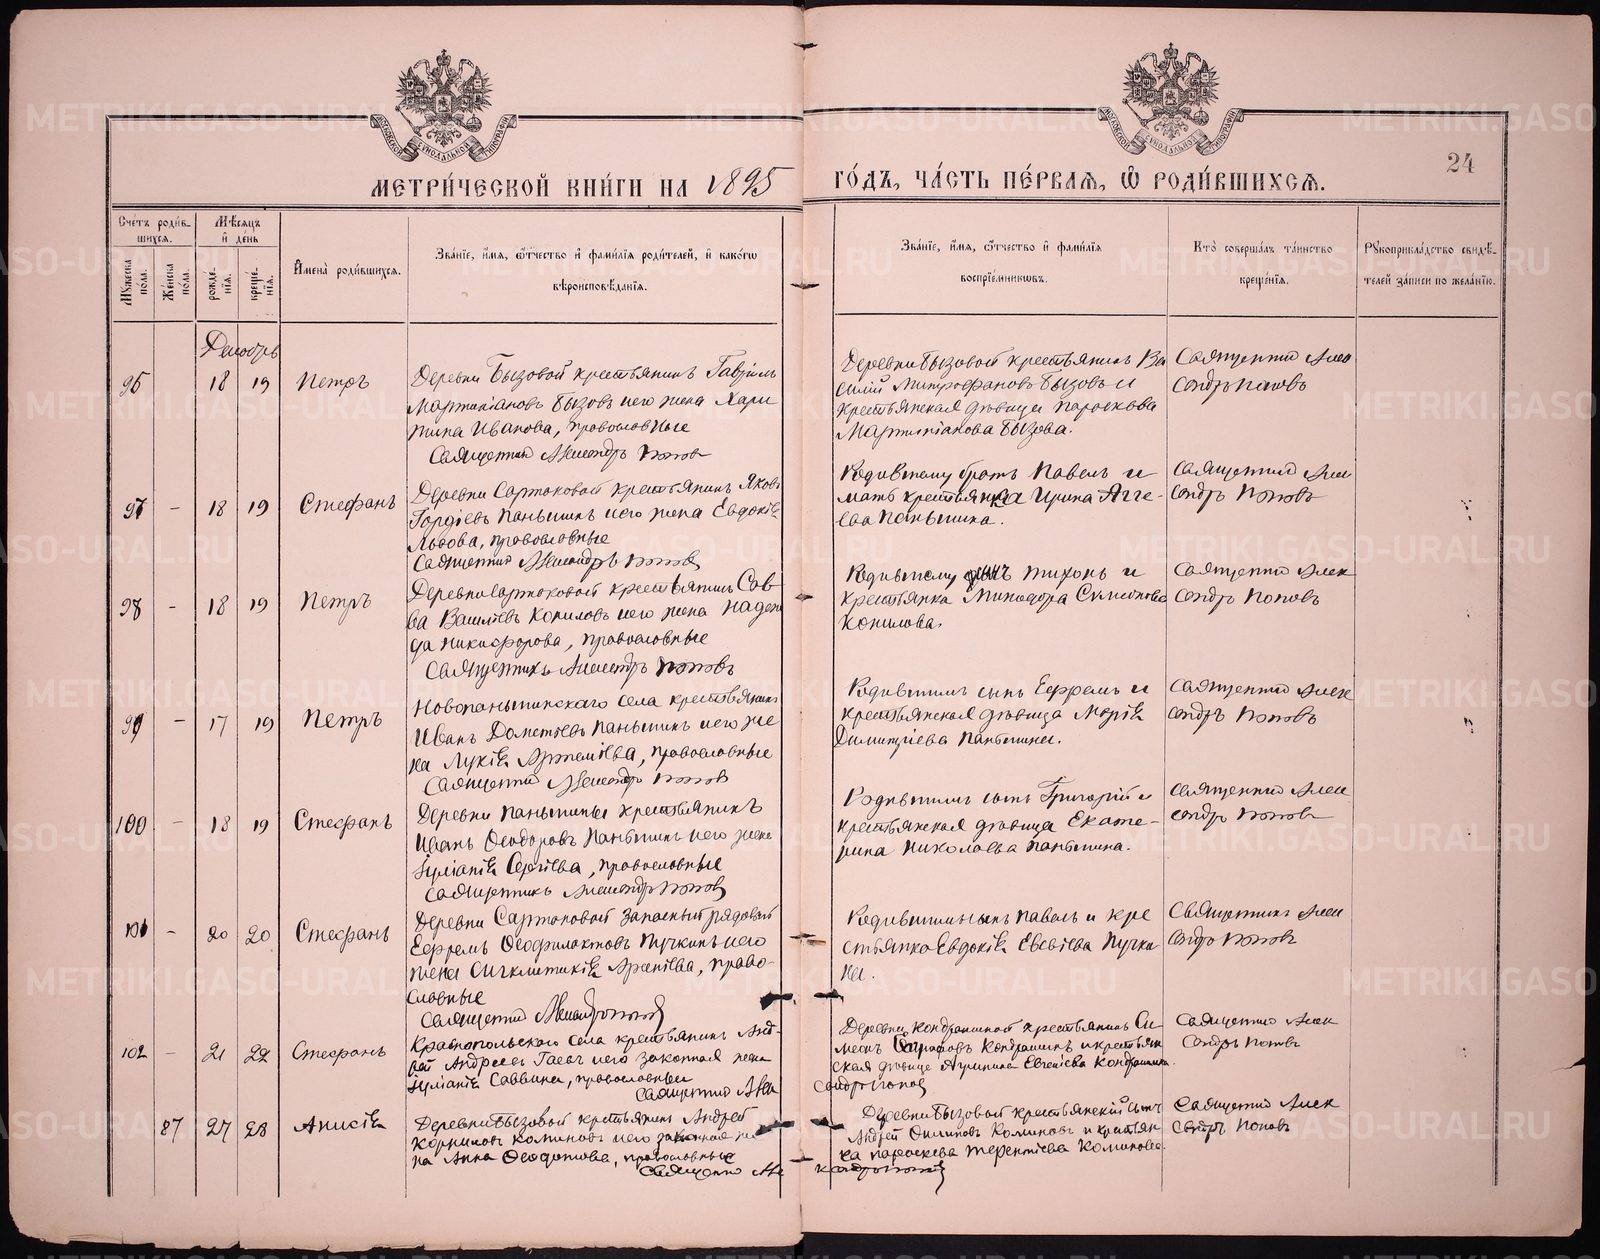 МЕТРИ́ЧЕСКОЙ КНИ́ГИ НА 1895 ГО́ДЪ, ЧА́СТЬ ПЕ́РВАѦ, Ѡ҆ РОДИ́ВШИХСѦ.
24
Сче́тъ роди́вшихсѧ.
Мꙋ́жеска по́ла.
Же́нска по́ла.
Мѣ́сѧцъ и҆ де́нь
рожде́нїѧ.
креще́нїѧ.
И҆мена̀ роди́вшихсѧ.
Зва́нїе, и҆́мѧ, ѻ҆́тчество и҆ фами́лїѧ роди́телей, и҆ како́гѡ
вѣроисповѣ́данїѧ.
Зва́нїе, и҆́мѧ, ѻ҆́тчество и҆ фами́лїѧ
воспрїе́мниковъ.
Кто̀ соверша́лъ та́инство
креще́нїѧ.
Рꙋкоприкла́дство свидѣ́телей за́писи по жела́нїю.
Декабрь
96 18 19 Петръ
Деревни Бызовой крестьянинъ Гавріилъ
Мартиніановъ Бызовъ и его жена Хари
тина Иванова, православные
Священникъ Александръ Поповъ
Деревни Бызовой крестьянинъ Ва
силій Митрофановъ Бызовъ и
крестьянская дѣвица Параскова
Мартиніанова Бызова.
Священникъ Алек
сандръ Поповъ
97 - 18 19 Стефанъ
Деревни Сартаковой крестьянинъ Яковъ
Гордіевъ Паньшинъ и его жена Евдокія
Львова, православные
Священникъ Александръ Поповъ
Родившему братъ Павелъ и
мать крестьянка Ирина Агге-
ева Паньшина.
Священникъ Алек
сандръ Поповъ
98 - 18 19 Петръ
Деревни Сартаковой крестьянинъ Сав-
ва Васильевъ Копыловъ и его жена Надеж
да Никифорова, православные
Священникъ Александръ Поповъ
Родившему сынъ Тихонъ и
крестьянка Минодора Симеонова
Копылова.
Священникъ Алек
сандръ Поповъ
99 - 17 19 Петръ
Новопаньшинскаго села крестьянинъ
Иванъ Дометіевъ Паньшинъ и его же
на Лукія Артеміева, православные
Священникъ Александръ Поповъ
Родившимъ сынъ Ефремъ и
крестьянская дѣвица Марія
Димитріева Паньшина.
Священникъ Алек
сандръ Поповъ
100 - 18 19 Стефанъ
Деревни Паньшиной крестьянинъ
Иванъ Ѳеодоровъ Паньшинъ и его жена
Іуліанія Сергіева, православные
Священникъ Александръ Поповъ
Родившимъ сынъ Григорій и
крестьянская дѣвица Екате-
рина Николаева Паньшина.
Священникъ Алек
сандръ Поповъ
101 - 20 20 Стефанъ
Деревни Сартаковой запасный рядовой
Ефремъ Ѳеофилактовъ Пучкинъ и его
жена Синклитикія Арсеніева, право-
славные
Священникъ Александръ Поповъ
Родившимъ сынъ Павелъ и кре
стьянка Евдокія Евсевіева Пучки
на.
Священникъ Алек
сандръ Поповъ
102 - 21 22 Стефанъ
Краснопольскаго села крестьянинъ Анд-
рей Андреевъ и его законная жена
Іуліанія Саввина, православные
Священникъ Алек
сандръ Поповъ
Деревни Кондрашиной крестьянинъ Си
меонъ Кондрашинъ и крестьян
ская дѣвица Агрипина Евгеніева Кондрашина
Священникъ Алек
сандръ Поповъ
87 27 28 Анисія
Деревни Бызовой крестьянинъ Андрей
Корниловъ Комановъ и его законная же
на Анна Ѳеодотова, православные
Священникъ Але
ксандръ Поповъ
Деревни Бызовой крестьянскій сынъ
Андрей Филиповъ Комановъ и крестьян
ка Параскева Терентіева Команова
Священникъ Алек
сандръ Поповъ
METRIKI.GASO-URAL.RU